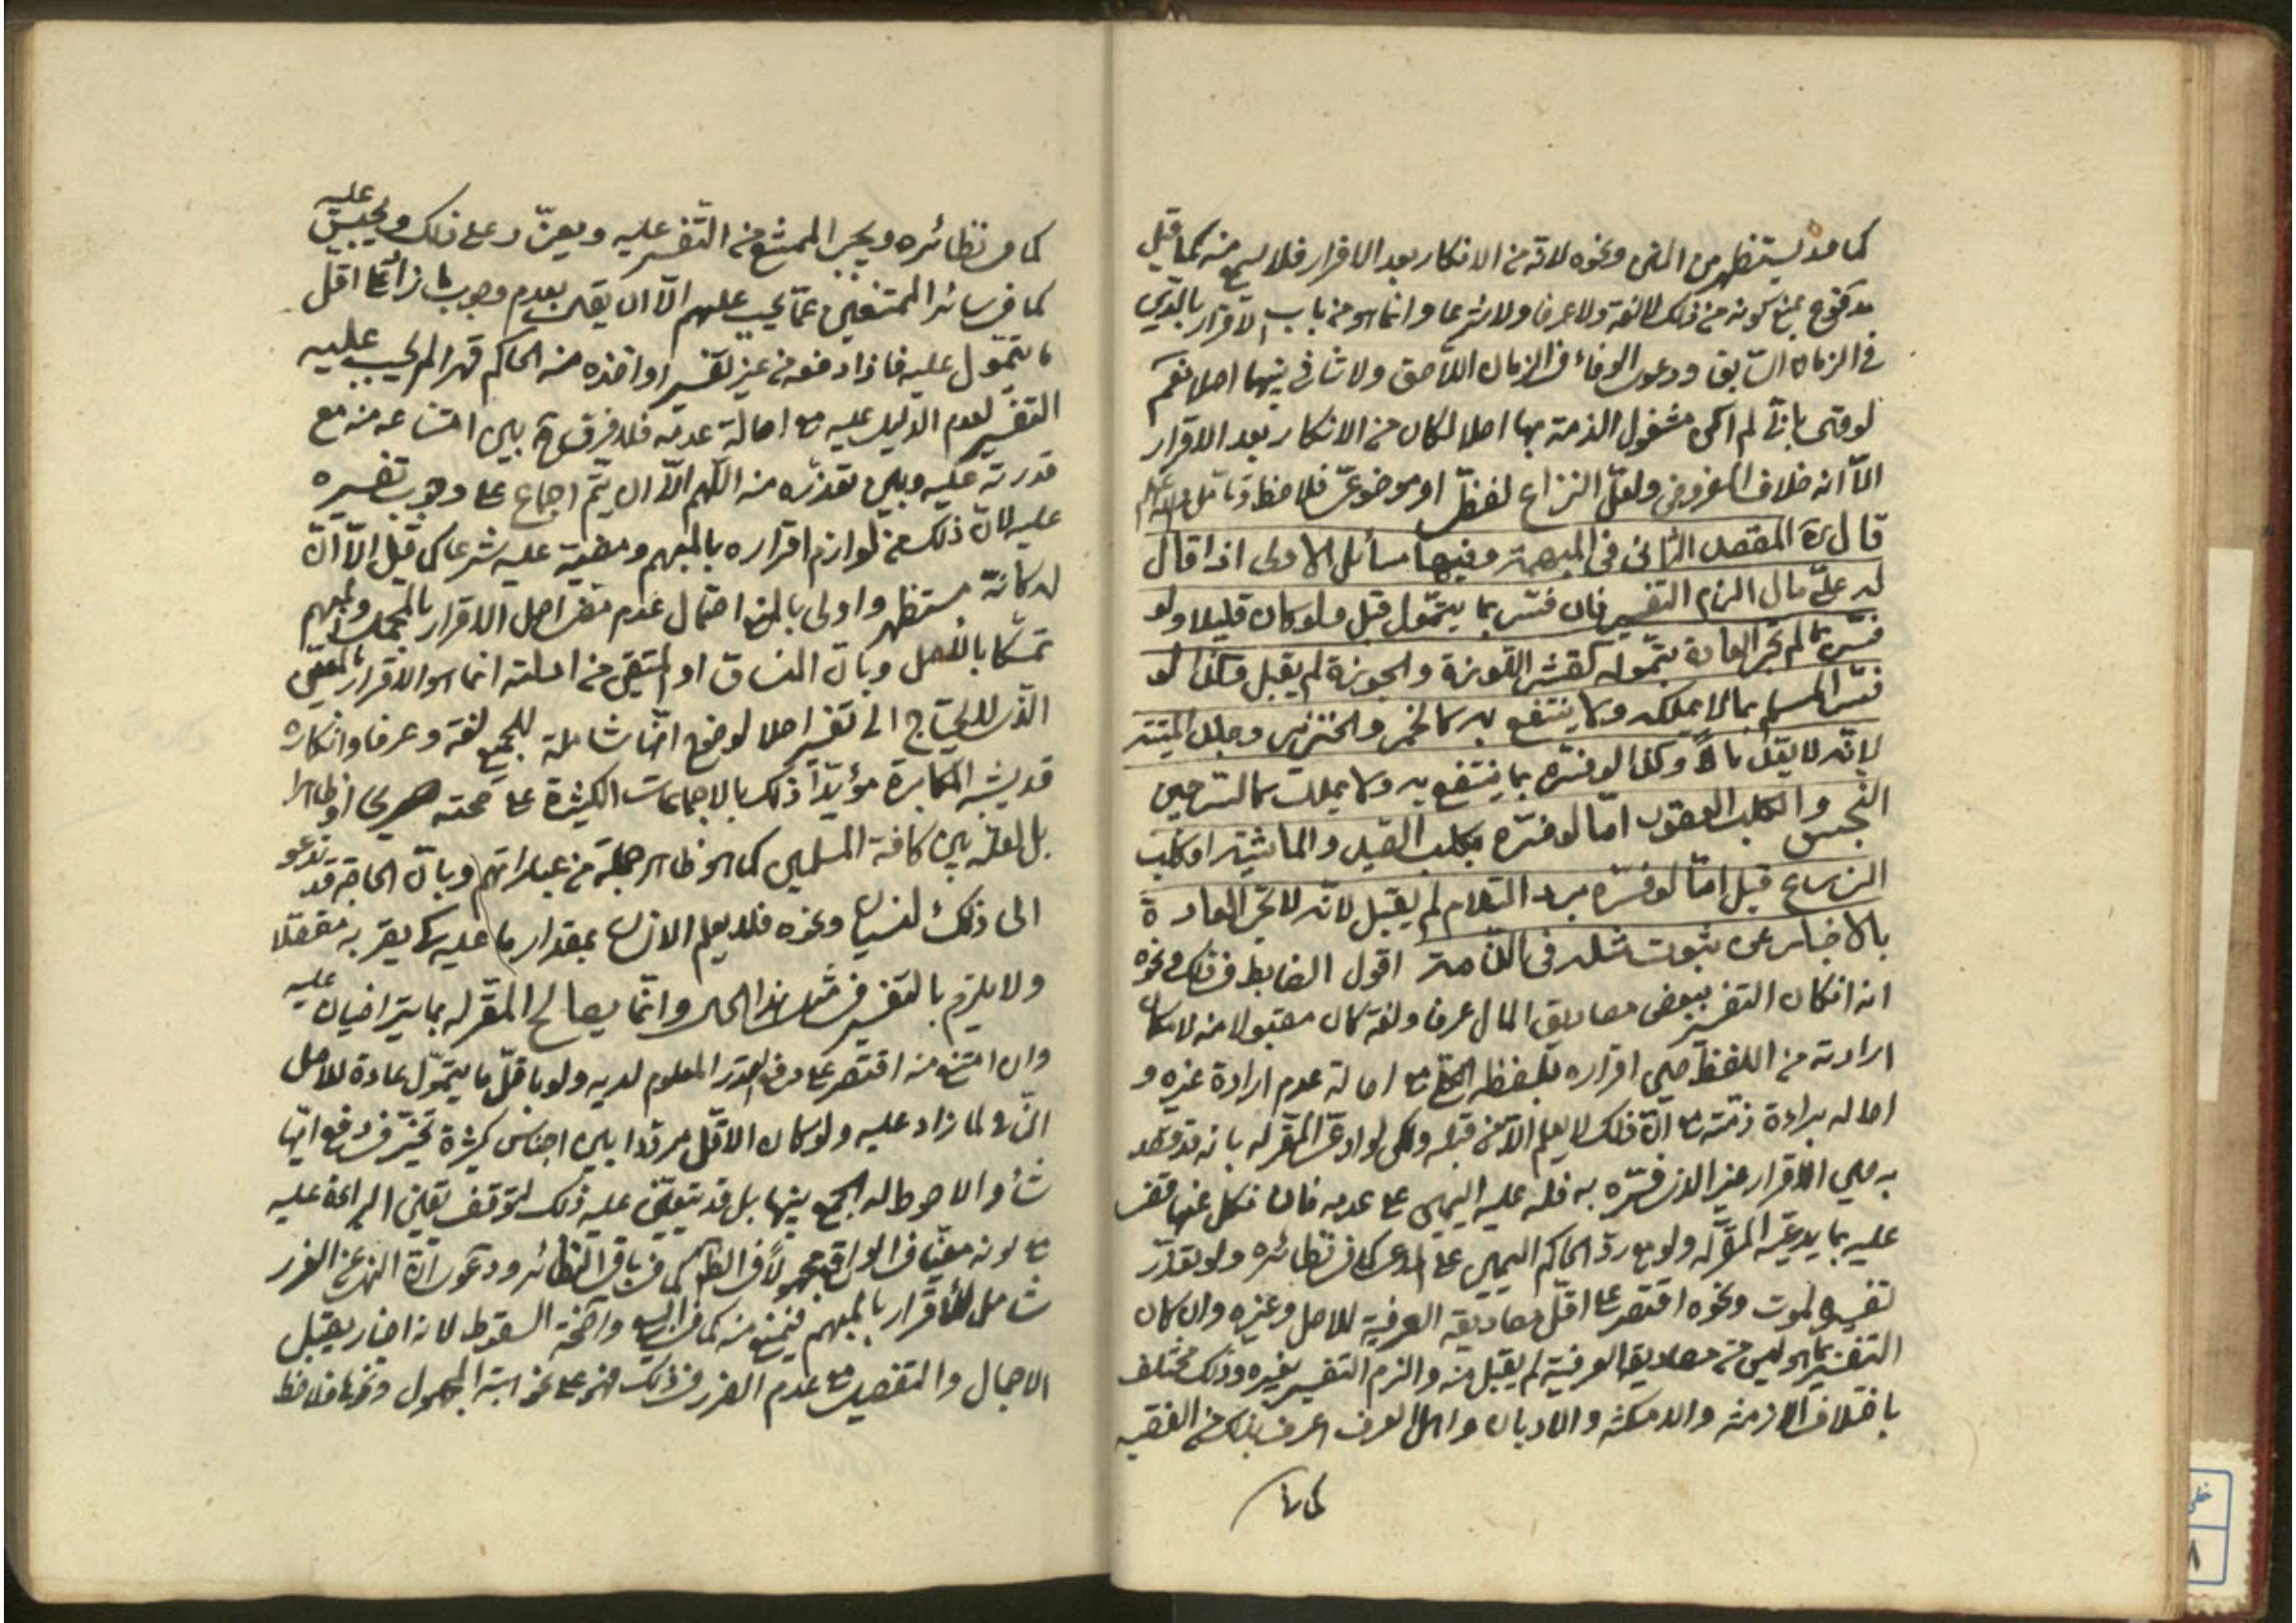 كما قد يستظهر من المتن ونحوه لانه من الانكار بعد الاقرار فلا يسمع منه كما قيل
مدفوع بمنع كونه من ذلك لا لغة ولا عرفا ولا شرعا وانما هو من باب الاقرار بالدين
في الزمان السابق ودعوى الوفاء في الزمان اللاحق ولا تنافي بينهما اصلا نعم
لو فسر بانى لم اكن مشغول الذمة بها اصلا لكان من الانكار بعد الاقرار
الا انه خلاف المفروض ولعل النزاع لفظي او موضوعي فلاحظ وتأمل والله
قال ره المقصد الثانى فى المبهمة وفيها مسائل الاولى اذا قال
له علىّ مال الزم التفسير فان فسّر بما يتموّل قبل ولو كان قليلا ولو
فسّره بما لم تجر العادة بتموله كقشر اللوزة والجوزة لم يقبل وكذا لو
فسّر المسلم بما لا يملكه ولا ينتفع به كالخمر والخنزير وجلد الميتة
لانّه لا يعدّ مالاً وكذا لو فسّره بما ينتفع به ولا يملك كالسرجين
النجس والكلب العقور امّا لو فسّره بكلب الصيد والماشية او كلب
الزرع قبل امّا لو فسّره برد السّلام لم يقبل لانّه لا تجر العادة
بالاخبار عن ثبوت مثله فى الذمة اقول الضابط في ذلك ونحوه
انه ان كان التفسير ببعض مصاديق المال عرفا ولغة كان مقبولا منه لامكان
ارادته من اللفظ حين اقراره بلفظه مع اصالة عدم ارادة غيره و
اصالة براءة ذمته مع ان ذلك لا يعلم الا من قبله ولكن لو ادعى المقر له بانه قد قصد
به حين الاقرار غير الذي فسّره به فله عليه اليمين على عدمه فان نكل عنها قضى
عليه بما يدعيه المقر له ولو مع رد الحاكم اليمين على المدعى كما في نظائره ولو تعذّر
تفسيره لموت ونحوه اقتصر على اقل مصاديقه العرفية للاصل وغيره وان كان
التفسير بما هو ليس من مصاديقه العرفية لم يقبل منه والزم التفسير بغيره وذلك مختلف
باختلاف الازمنة والامكنة والاديان واهل العرف اعرف بذلك من الفقيه
كما في نظائره ويجبر الممتنع من التفسير عليه ويعزّر على ذلك ويحبس عليه
كما في سائر الممتنعين عما يجب عليهم الا ان يقال بعدم وجوب ما زاد على اقل
ما يتموّل عليه فاذا دفعه من غير تفسير او اخذه منه الحاكم قهرا لم يجب عليه
التفسير لعدم الدليل عليه مع اصالة عدمه فلا فرق ح بين امتناعه منه مع
قدرته عليه وبين تعذره منه اللهم الا ان يتم اجماع على وجوب تفسيره
عليه لان ذلك من لوازم اقراره بالمبهم ومقتضيه عليه شرعا كما قيل الا ان
تمسكا بالاصل وبان المنساق او المتيقن من ادلته انما هو الاقرار بالمعيّن
الذي لا يحتاج الى تفسير اصلا لوضوح انها شاملة للجميع لغة وعرفا وانكاره
قد يشبه المكابرة مؤيدا ذلك بالاجماعات الكثيرة على صحته صريحا او ظاهرا
بل لعله بين كافة المسلمين كما هو ظاهر جملة من عباراتهم وبان الحاجة قد تدعو
الى ذلك لنسيان ونحوه فلا يعلم الانسان بمقدار ما عليه كي يقر به مفصلا
ولا يلزم بالتفسير في مثل هذا الحال وانما يصالح المقر له بما يتراضيان عليه
وان امتنع منه اقتصر على دفع القدر المعلوم لديه ولو باقل ما يتموّل عادة للاصل
النافي لما زاد عليه ولو كان الاقل مرددا بين اجناس كثيرة تخير في دفع ايها
شاء والاحوط له الجمع بينها بل قد يتعين عليه ذلك لتوقف يقين البراءة عليه
مع كونه معينا في الواقع مجهولا في الظاهر كما في باقي النظائر ودعوى ان النهى عن الغرر
شامل للاقرار بالمبهم فيمنع منه كما في البيع واضحة السقوط لانه اخبار يقبل
الاجمال والتفصيل مع عدم الغرر في ذلك فهو على نحو هبة المجهول ونحوها فلاحظ